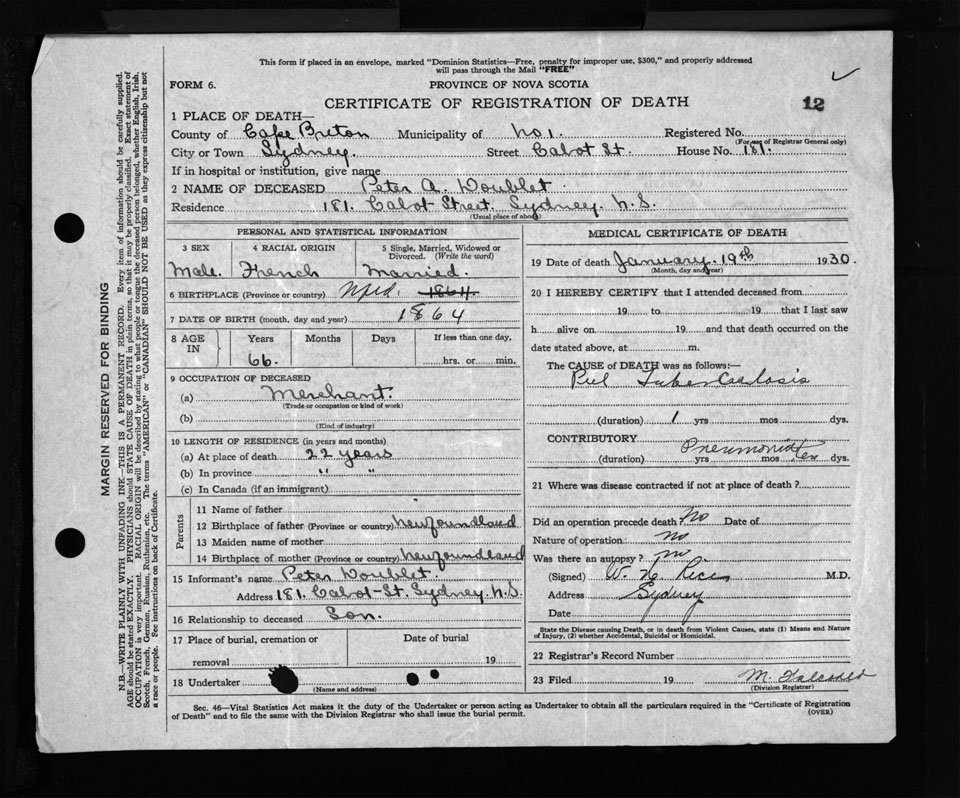 This form if placed in an envelope, marked "Dominion Statistics—Free, penalty for improper use, $300," and properly addressed
will pass through the Mail "FREE"
FORM 6.
PROVINCE OF NOVA SCOTIA
CERTIFICATE OF REGISTRATION OF DEATH
12
1 PLACE OF DEATH—
County of Cape Breton Municipality of No 1. Registered No.
(For use of Registrar General only)
City or Town Sydney. Street Cabot St. House No. 181.
If in hospital or institution, give name
2 NAME OF DECEASED Peter A. Doublet
Residence 181. Cabot Street. Sydney. N.S.
(Usual place of abode)
PERSONAL AND STATISTICAL INFORMATION
3 SEX 4 RACIAL ORIGIN 5 Single, Married, Widowed or
Divorced. (Write the word)
Male. French Married.
6 BIRTHPLACE (Province or country) Nfld. 1864.
7 DATE OF BIRTH (month, day and year) 1864
8 AGE IN Years Months Days If less than one day,
66. hrs. or min.
9 OCCUPATION OF DECEASED
(a) Merchant.
(Trade or occupation or kind of work)
(b)
(Kind of industry)
10 LENGTH OF RESIDENCE (in years and months)
(a) At place of death 22 years
(b) In province " "
(c) In Canada (if an immigrant)
Parents
11 Name of father
12 Birthplace of father (Province or country) Newfoundland
13 Maiden name of mother
14 Birthplace of mother (Province or country) Newfoundland
15 Informant's name Peter Doublet.
Address 181. Cabot-St. Sydney. N.S.
16 Relationship to deceased Son.
17 Place of burial, cremation or Date of burial
removal 19
18 Undertaker
(Name and address)
MEDICAL CERTIFICATE OF DEATH
19 Date of death January. 19th 1930.
(Month, day and year)
20 I HEREBY CERTIFY that I attended deceased from
19 to 19 that I last saw
h alive on 19 and that death occurred on the
date stated above, at m.
The CAUSE of DEATH was as follows:—
Pul Tuberculosis
(duration) 1 yrs mos dys.
CONTRIBUTORY Pneumonia
(duration) yrs mos few dys.
21 Where was disease contracted if not at place of death?
Did an operation precede death? No Date of
Nature of operation no
Was there an autopsy? no
(Signed) W. N. Rice M.D.
Address Sydney
Date
State the Disease causing Death, or in death from Violent Causes, state (1) Means and Nature
of Injury, (2) whether Accidental, Suicidal or Homicidal.
22 Registrar's Record Number
23 Filed 19 M.
(Division Registrar)
Sec. 46—Vital Statistics Act makes it the duty of the Undertaker or person acting as Undertaker to obtain all the particulars required in the "Certificate of Registration
of Death" and to file the same with the Division Registrar who shall issue the burial permit.
(OVER)
MARGIN RESERVED FOR BINDING
N.B.—WRITE PLAINLY WITH UNFADING INK—THIS IS A PERMANENT RECORD. Every item of information should be carefully supplied.
AGE should be stated EXACTLY. PHYSICIANS should STATE CAUSE OF DEATH in plain terms, so that it may be properly classified. Exact statement of
OCCUPATION is very important. RACIAL ORIGIN will be described by stating to what people or tongue the deceased person belonged, whether English, Irish,
Scotch, French, German, Russian, Ruthenian, etc. The terms "AMERICAN" or "CANADIAN" SHOULD NOT BE USED as they express citizenship but not
a race or people. See instructions on back of Certificate.